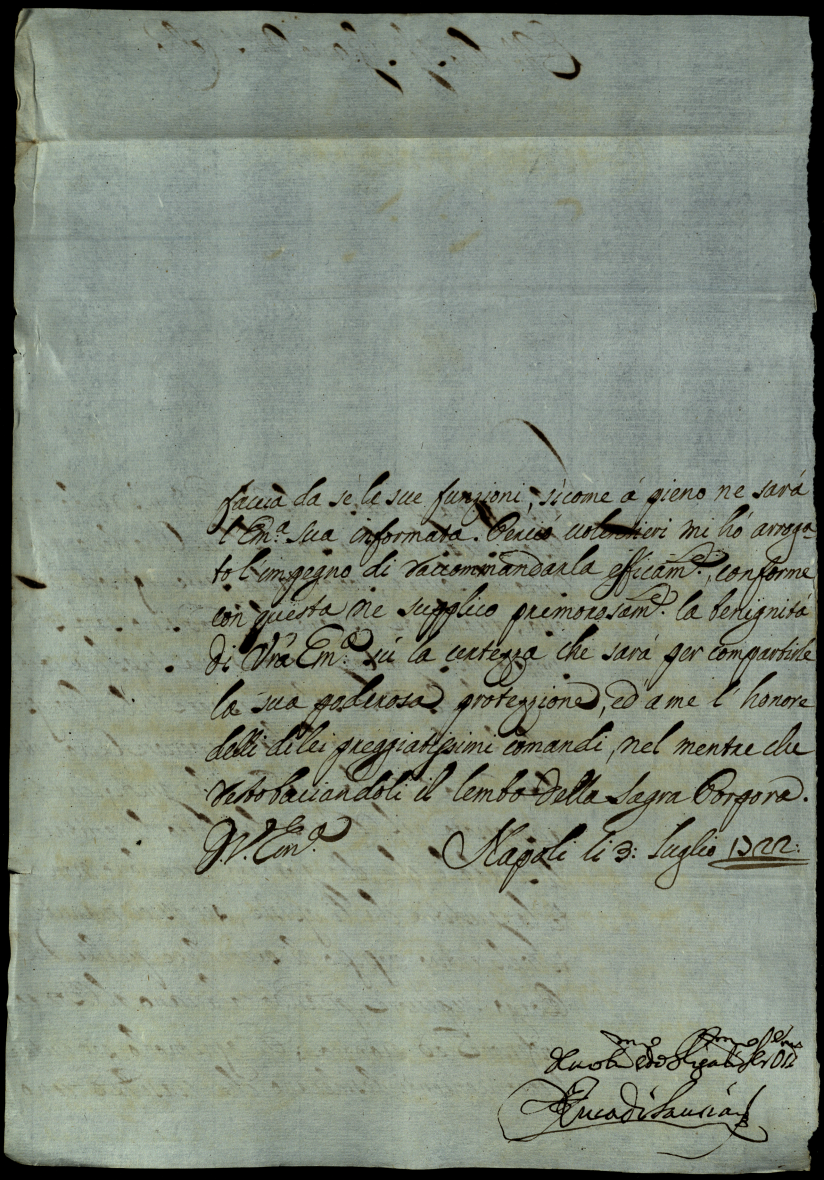 faccia da sè le sue funzioni, sicome à pieno ne sarà
l'Em.ª sua informata. Perciò volentieri mi hò arroga
to l'impegno di raccommandarla efficam.e, conforme
con questa ne supplico premorosam.e la benignità
di Vrã Em.ª sù la certezza che sarà per compartirle
la sua poderosa protezzione, ed a me l'honore
delli di lei preggiatissimi comandi, nel mentre che
resto baciandoli il lembo della Sagra Porpora.
D V. Em.ª Napoli li 3: luglio 1722:
Devot.mo ed Oblig.mo Ser.
Duca di Lauria